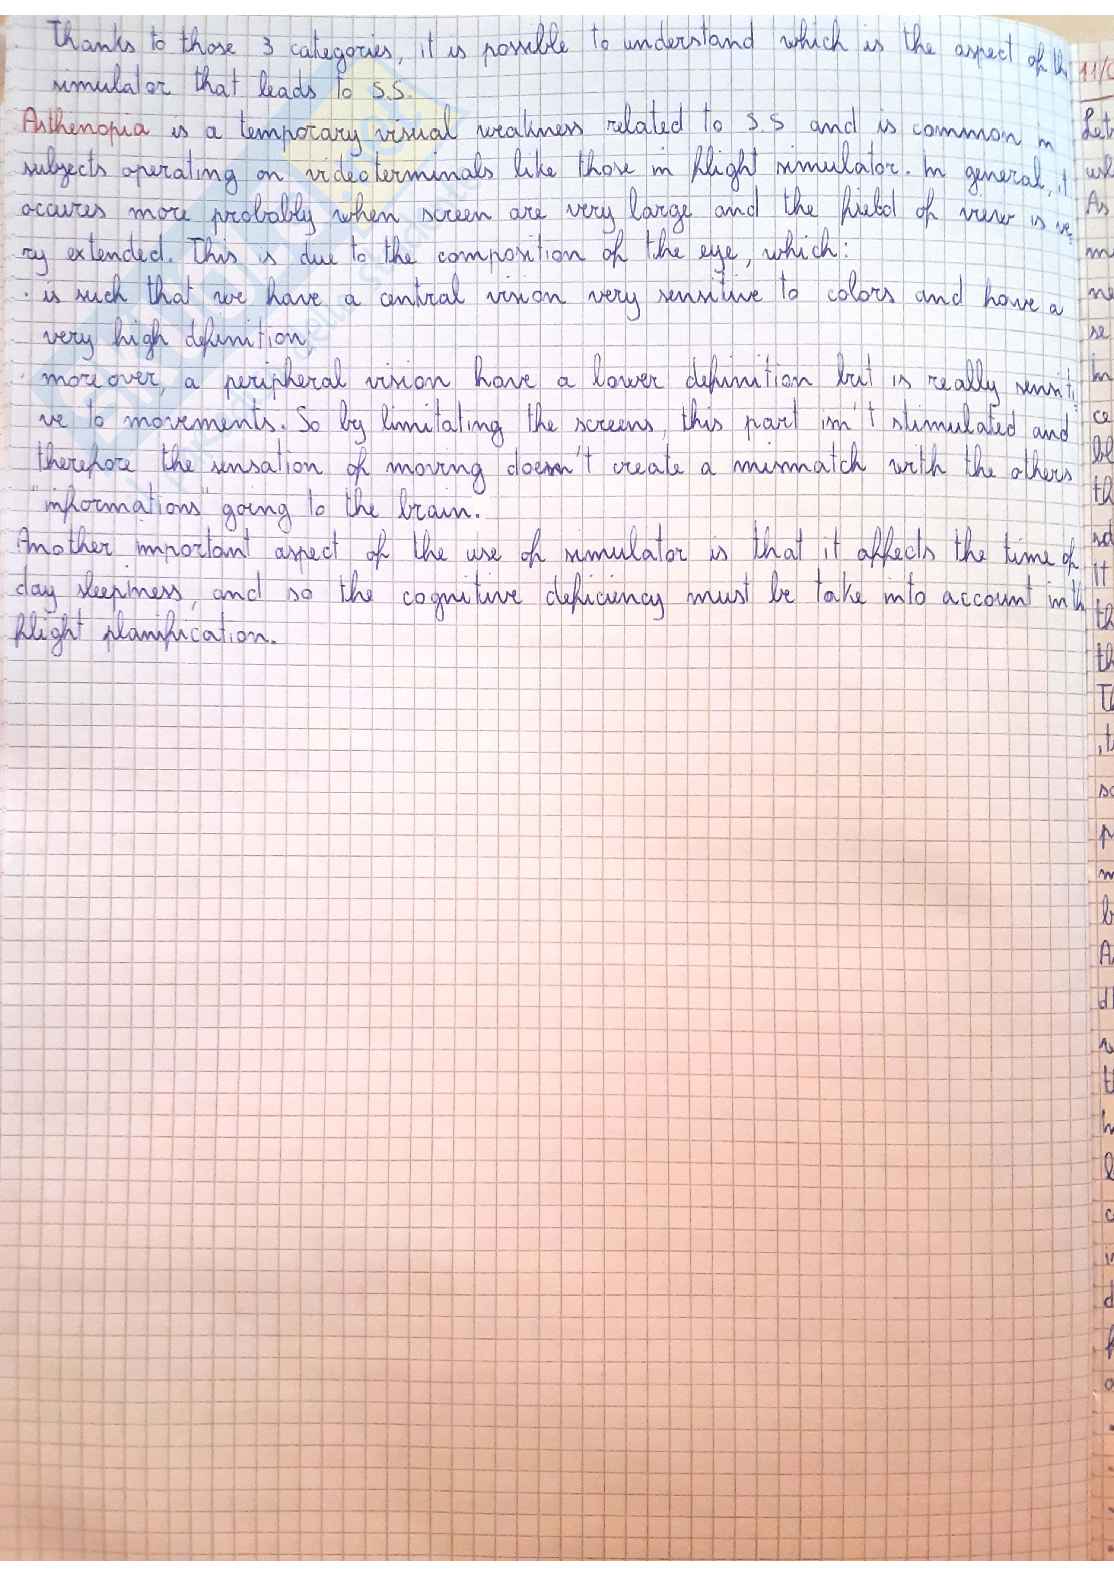 Thanks to those 3 categories, it is possible to understand which is the aspect of th
simulator that leads to S.S.
Asthenopia is a temporary visual weakness related to S.S and is common in
subjects operating on videoterminals like those in flight simulator. In general, it
occures more probably when screen are very large and the field of view is ve
ry extended. This is due to the composition of the eye, which:
· is such that we have a central vision very sensitive to colors and have a
very high definition,
· moreover, a peripheral vision have a lower definition but is really sensiti
ve to movements. So by limitating the screens, this part isn't stimulated and
therefore the sensation of moving doesn't create a mismatch with the others
"informations" going to the brain.
Another important aspect of the use of simulator is that it affects the time of
day sleepiness, and so the cognitive deficiency must be take into account in th
flight planification.
11/0
Let
As